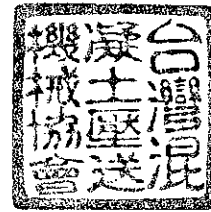 台灣混
凝土壓送
機械協會